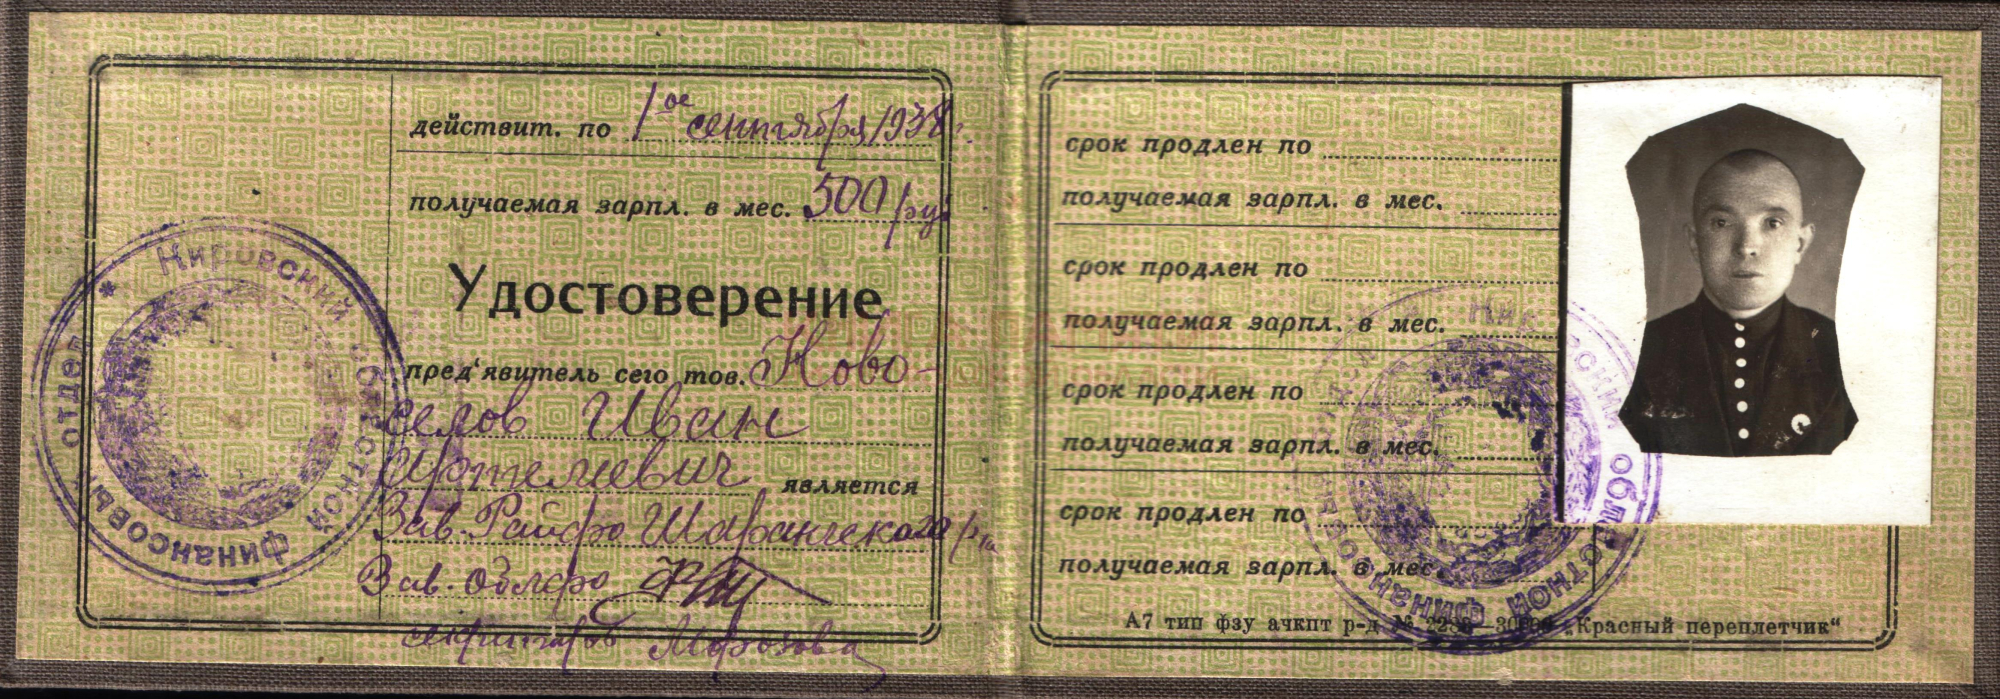 действит. по 1ое сентября 1938 г.
получаемая зарпл. в мес. 500 руб
Удостоверение
пред'явитель сего тов. Ново-
селов Иван
является
Зав. Райфо Шарангского р-на
Зав. облфо
секретарь Морозова
Кировский областной финансовый отдел *
срок продлен по
получаемая зарпл. в мес.
срок продлен по
получаемая зарпл. в мес.
срок продлен по
получаемая зарпл. в мес.
срок продлен по
получаемая зарпл. в мес.
А7 тип фзу ачкпт р-д № „Красный переплетчик“
Кировский областной финансовый отдел